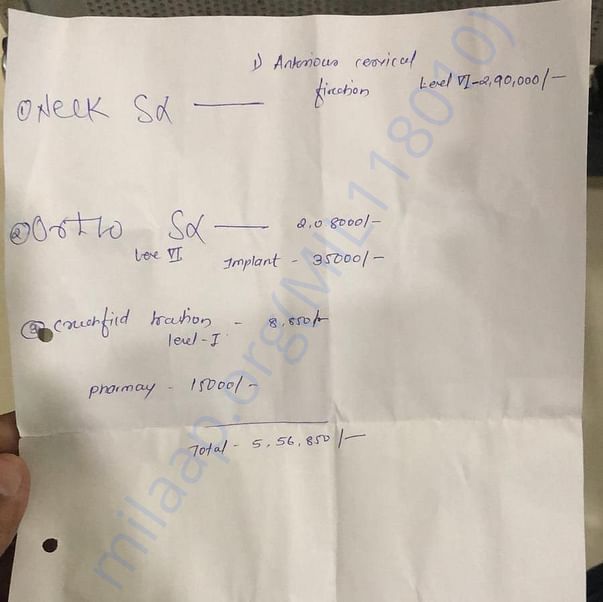 1) Anterious cervical
① Neck Sx — fixation Level VI - 2,90,000/-
② Ortho Sx — 2,08000/-
Leve VI Implant - 35000/-
③ cruchfid traction - 8,850/-
level - I
pharmay - 15000/-
Total - 5,56,850/-
milaap.org(MIL118010)